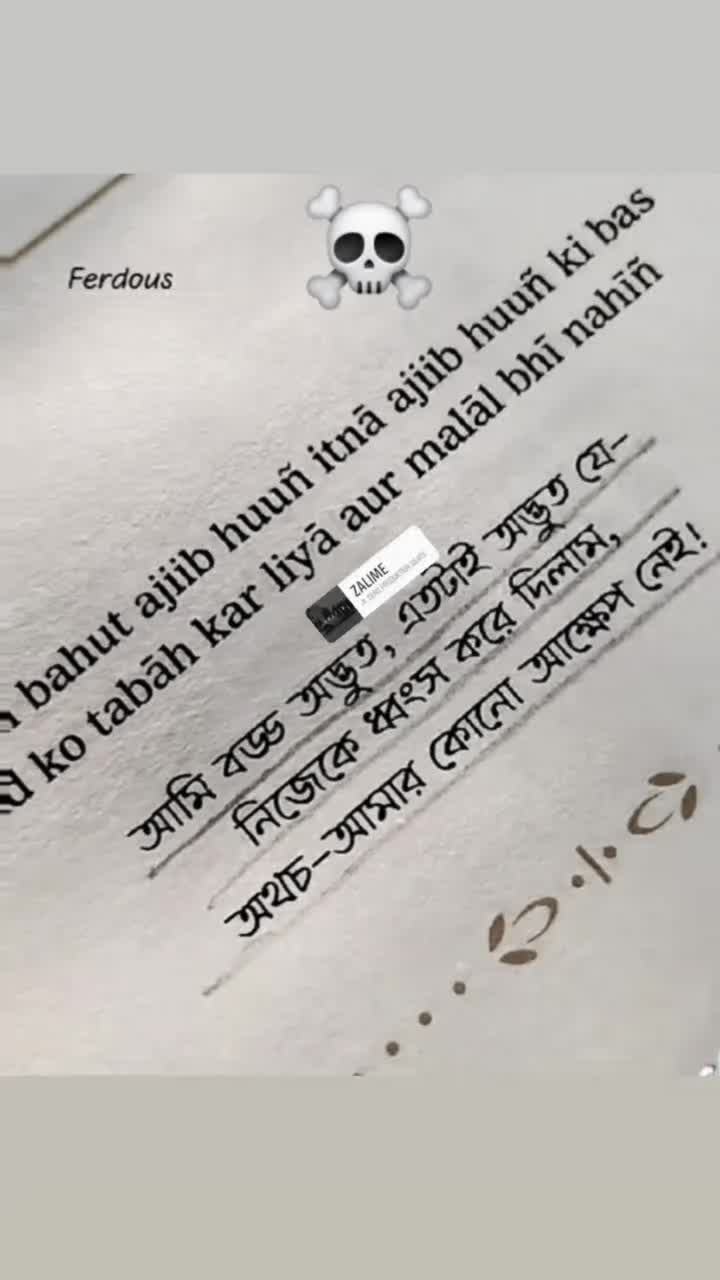 Ferdous
bahut ajiib huuñ itnā ajiib huuñ ki bas
ko tabāh kar liyā aur malāl bhī nahīñ
ZALIME
আমি বড্ড অদ্ভুত, এতটাই অদ্ভুত যে-
নিজেকে ধ্বংস করে দিলাম,
অথচ-আমার কোনো আক্ষেপ নেই!